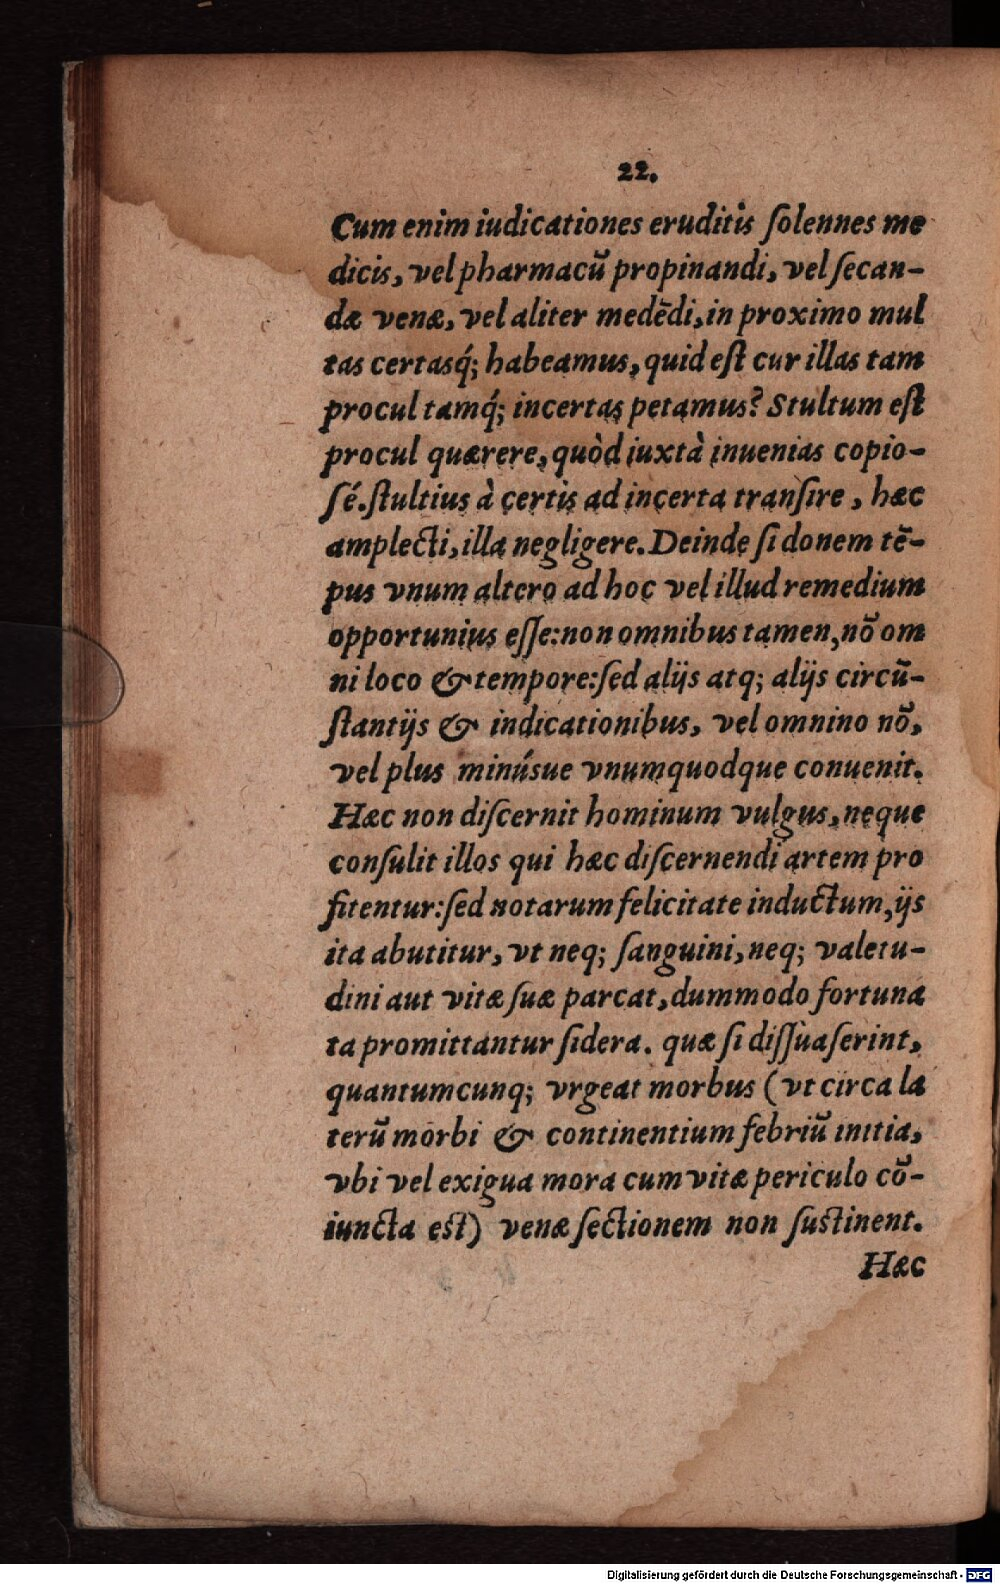 22.
Cum enim iudicationes eruditis ſolennes me
dicis, vel pharmacū propinandi, vel ſecan-
dæ venæ, vel aliter medēdi, in proximo mul
tas certasq́; habeamus, quid eſt cur illas tam
procul tamq́; incertas petamus? Stultum eſt
procul quærere, quòd iuxtà inuenias copio-
ſé. ſtultius à certis ad incerta tranſire, hæc
amplecti, illa negligere. Deinde ſi donem tē-
pus vnum altero ad hoc vel illud remedium
opportunius eſſe: non omnibus tamen, nō om
ni loco & tempore: ſed alijs atq; alijs circū-
ſtantijs & indicationibus, vel omnino nō,
vel plus minúsue vnumquodque conuenit.
Hæc non diſcernit hominum vulgus, neque
conſulit illos qui hæc diſcernendi artem pro
fitentur: ſed notarum felicitate inductum, ijs
ita abutitur, vt neq; ſanguini, neq; valetu-
dini aut vitæ ſuæ parcat, dummodo fortuna
ta promittantur ſidera. quæ ſi diſſuaſerint,
quantumcunq; vrgeat morbus (vt circa la
terū morbi & continentium febriū initia,
vbi vel exigua mora cum vitæ periculo cō-
iuncta eſt) venæ ſectionem non ſuſtinent.
Hæc
Digitalisierung gefördert durch die Deutsche Forschungsgemeinschaft - DFG